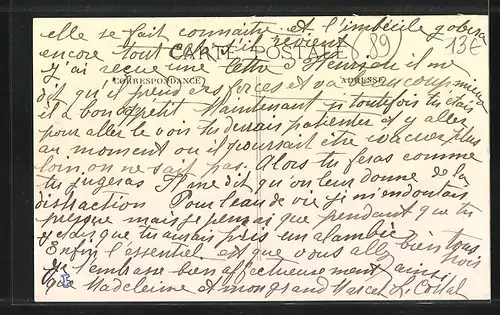 elle se fait connaitre et l'imbécile gobera
encore tout s'il revient
CARTE POSTALE
89
13€
j'ai reçue une lettre d' il me
CORRESPONDANCE
ADRESSE
dit qu'il prend des forces et va beaucoup mieux
il a bon apétit Maintenant si toutefois tu étais
pour aller le voir tu devrais patienter d'y aller
au moment ou il pourrait être évacuer plus
loin, on ne sait pas. Alors tu feras comme
tu jugeras Il me dit qu'on leur donne de la
distraction Pour l'eau de vie je m'en doutais
presque mais je pensai que pendant que tu
y étais que tu aurais pris un alambic
Enfin l'essentiel est que vous allez bien tous
Je t'embrasse bien affectueusement ainsi
que Madeleine et mon grand Marcel